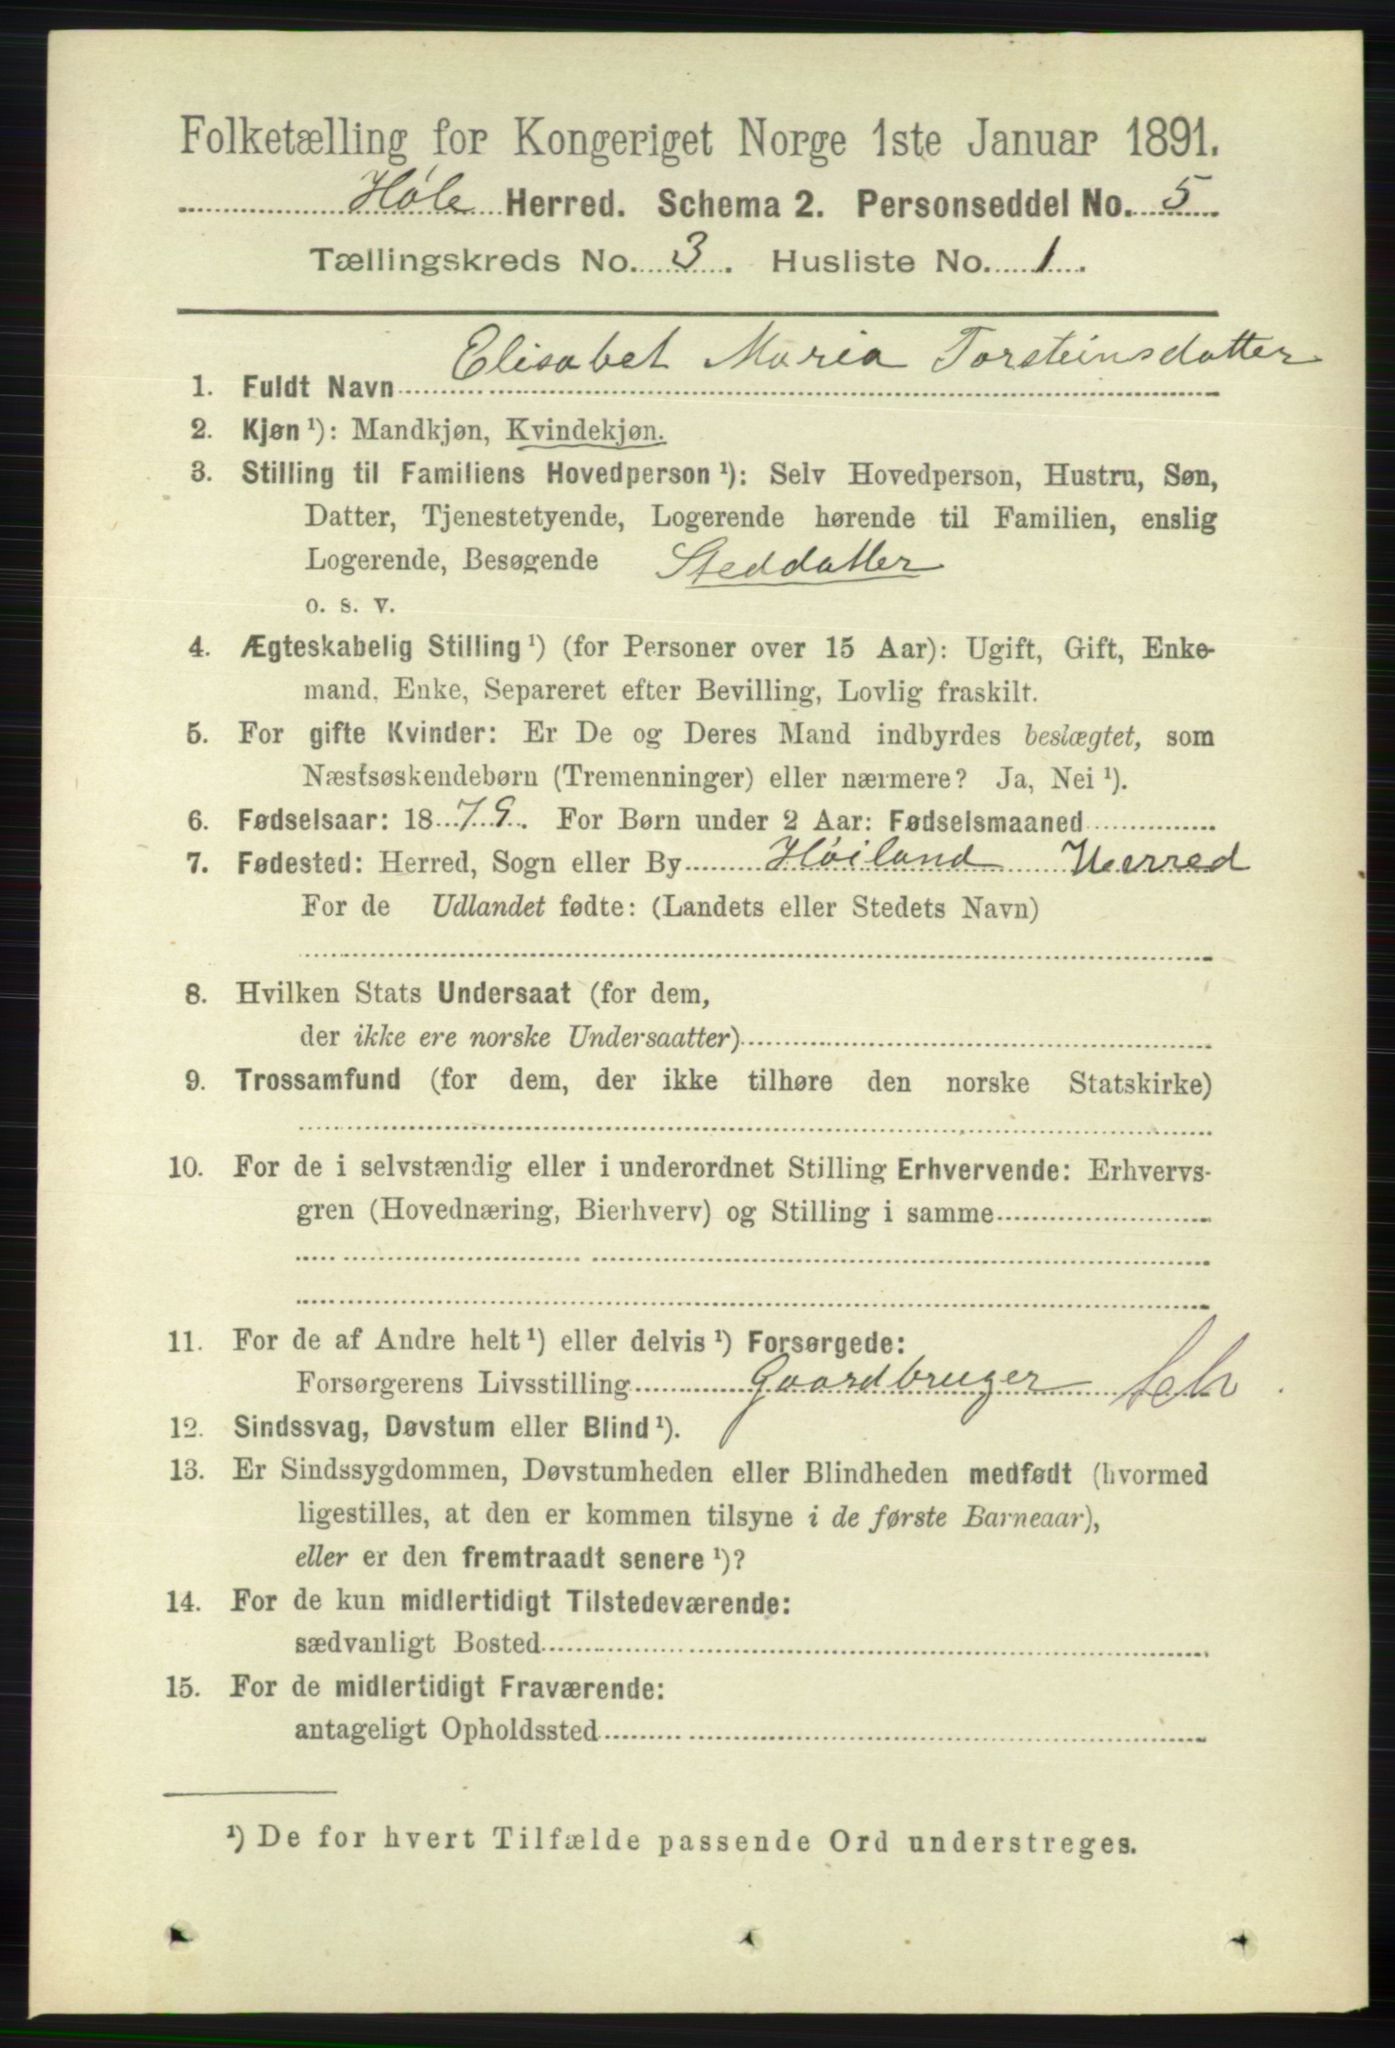 Folketælling for Kongeriget Norge 1ste Januar 1891.
Høle Herred. Schema 2. Personseddel No. 5
Tællingskreds No. 3. Husliste No. 1.
Elisabet Maria Torsteinsdatter
1. Fuldt Navn
2. Kjøn ¹): Mandkjøn, Kvindekjøn.
3. Stilling til Familiens Hovedperson ¹): Selv Hovedperson, Hustru, Søn,
Datter, Tjenestetyende, Logerende hørende til Familien, enslig
Logerende, Besøgende Steddatter
o. s. v.
4. Ægteskabelig Stilling ¹) (for Personer over 15 Aar): Ugift, Gift, Enke-
mand, Enke, Separeret efter Bevilling, Lovlig fraskilt.
5. For gifte Kvinder: Er De og Deres Mand indbyrdes beslægtet, som
Næstsøskendebørn (Tremenninger) eller nærmere? Ja, Nei ¹).
6. Fødselsaar: 1879. For Børn under 2 Aar: Fødselsmaaned
7. Fødested: Herred, Sogn eller By Høiland Herred
For de Udlandet fødte: (Landets eller Stedets Navn)
8. Hvilken Stats Undersaat (for dem,
der ikke ere norske Undersaatter)
9. Trossamfund (for dem, der ikke tilhøre den norske Statskirke)
10. For de i selvstændig eller i underordnet Stilling Erhvervende: Erhvervs-
gren (Hovednæring, Bierhverv) og Stilling i samme
11. For de af Andre helt ¹) eller delvis ¹) Forsørgede:
Forsørgerens Livsstilling Gaardbruger
12. Sindssvag, Døvstum eller Blind ¹).
13. Er Sindssygdommen, Døvstumheden eller Blindheden medfødt (hvormed
ligestilles, at den er kommen tilsyne i de første Barneaar),
eller er den fremtraadt senere ¹)?
14. For de kun midlertidigt Tilstedeværende:
sædvanligt Bosted
15. For de midlertidigt Fraværende:
antageligt Opholdssted
¹) De for hvert Tilfælde passende Ord understreges.